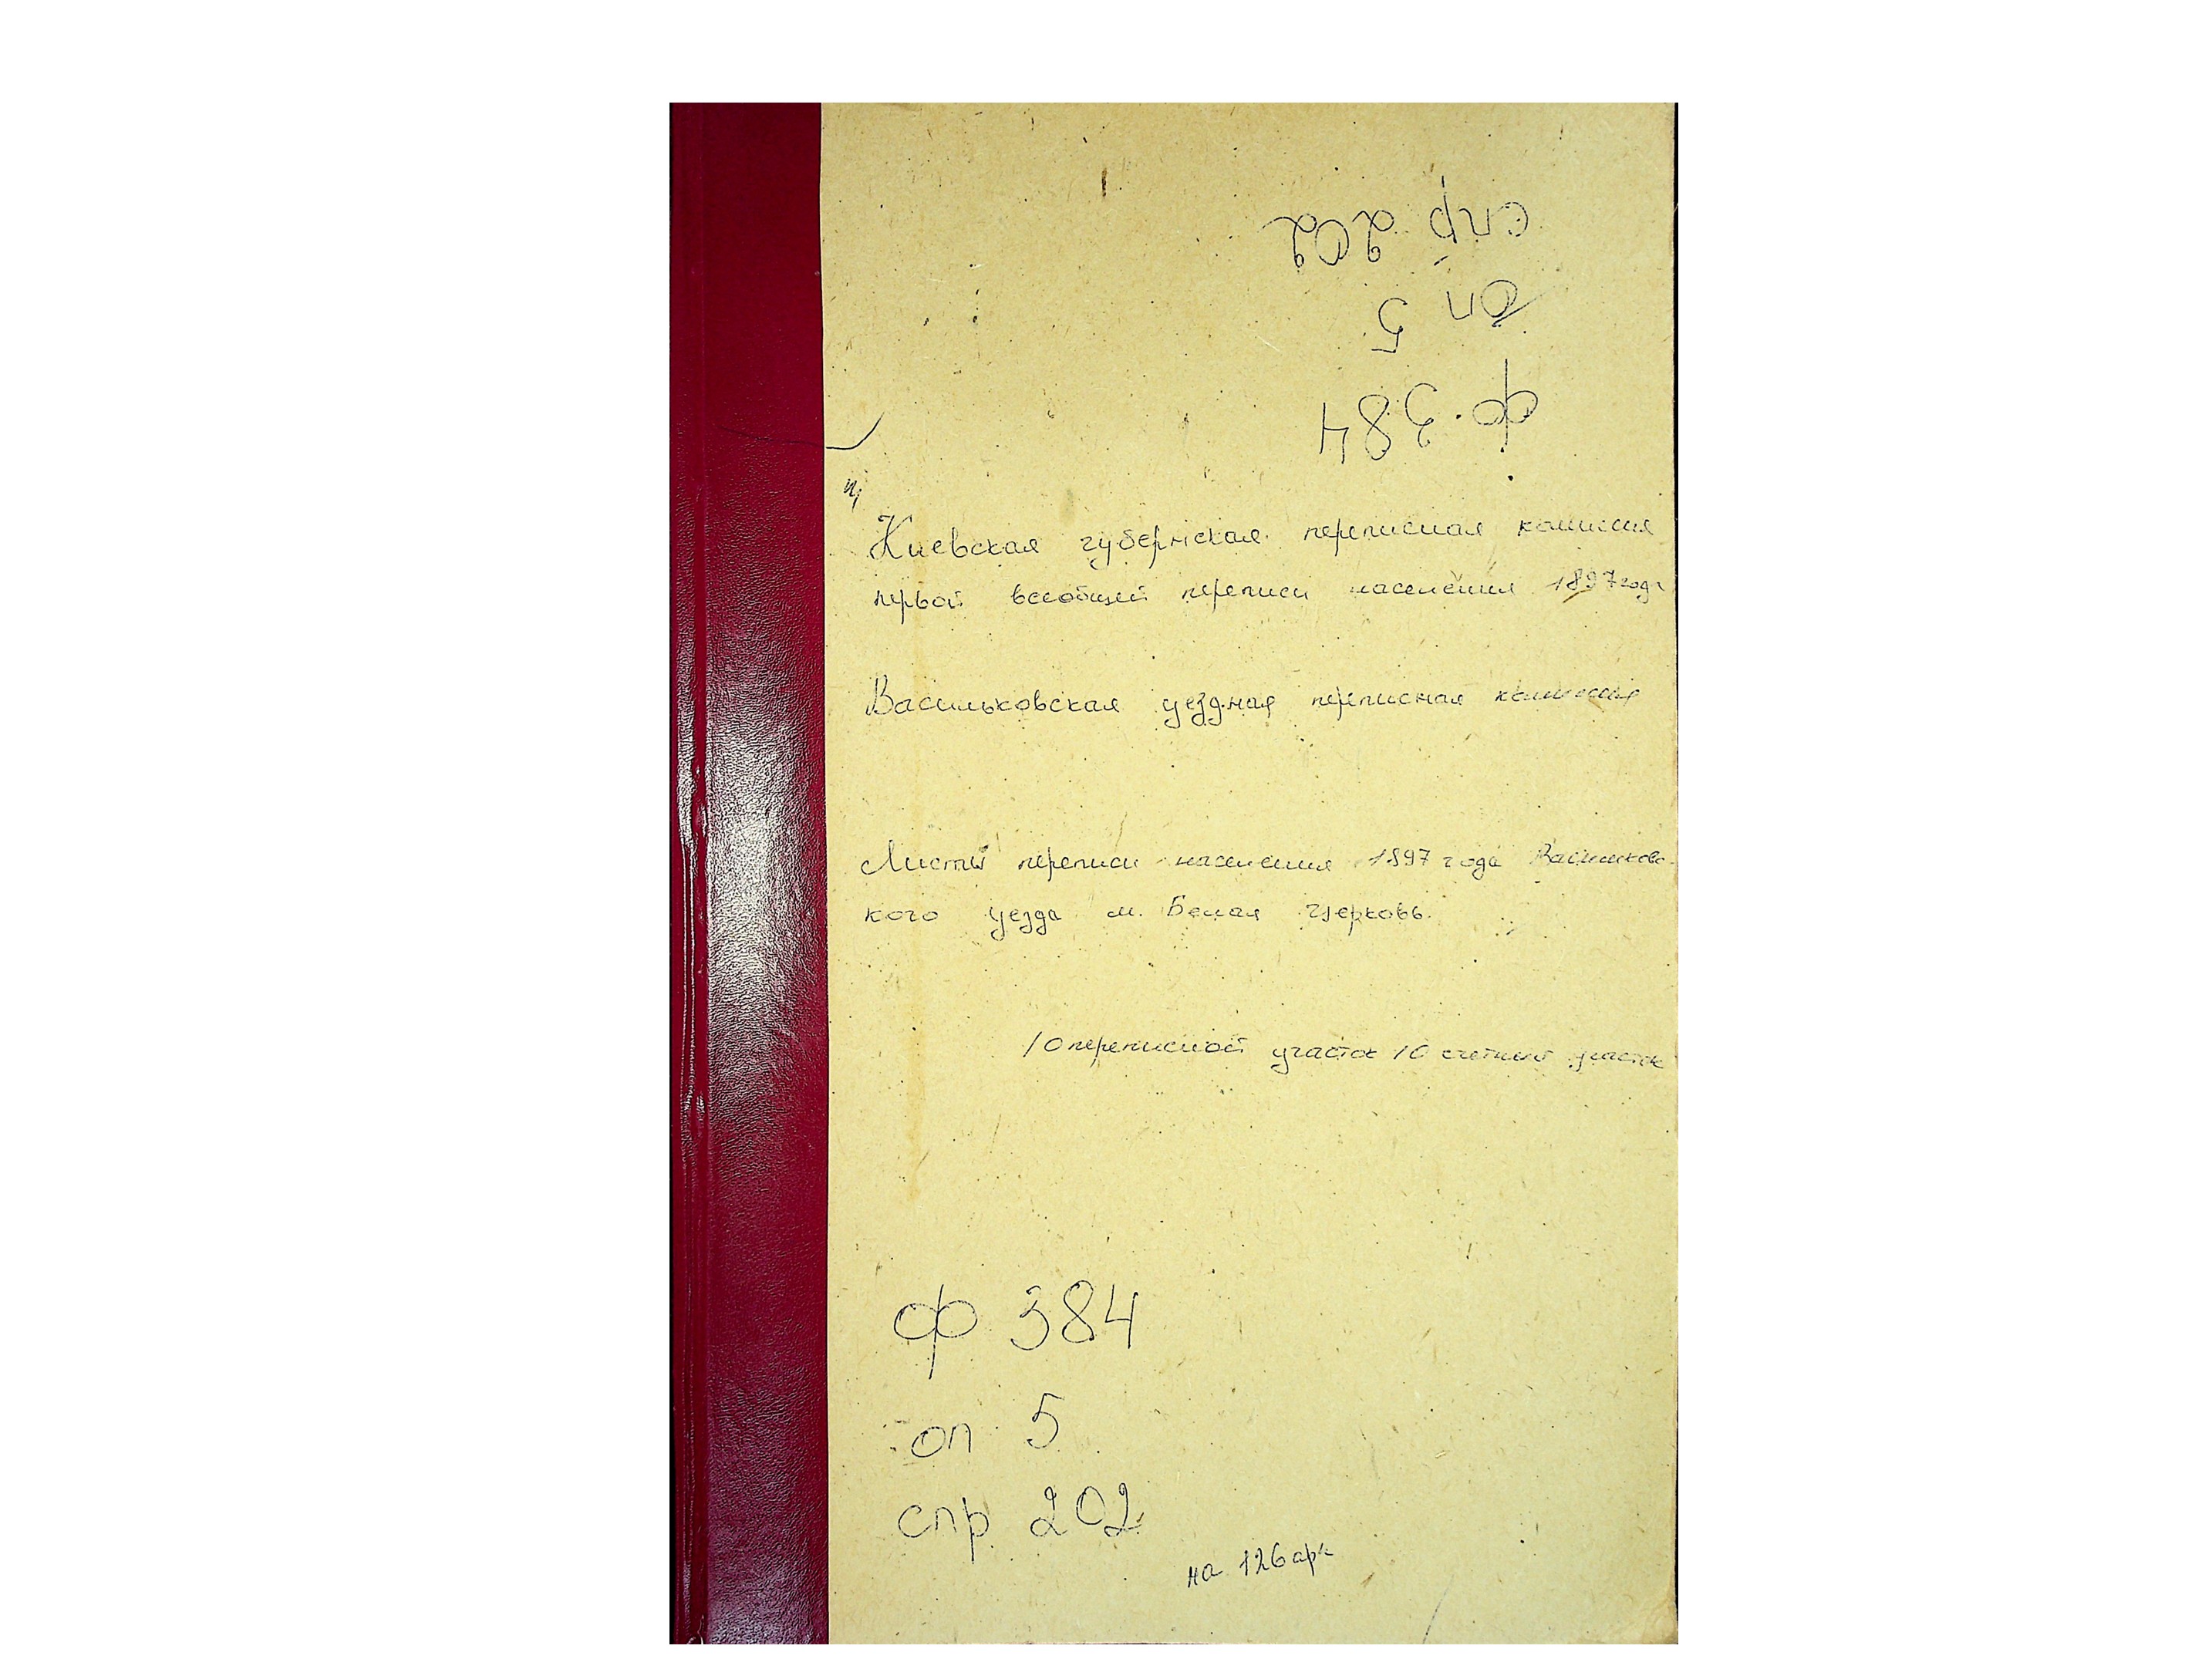 спр 202
оп 5
ф. 384
Киевская губернская переписная комиссия
первой всеобщей переписи населения 1897 года
Васильковская уездная переписная комиссия
Листы переписи населения 1897 года Васильковс-
кого уезда м. Белая Церковь.
10 переписной участок 10 счетный участок
ф 384
оп 5
спр 202
на 126 арк